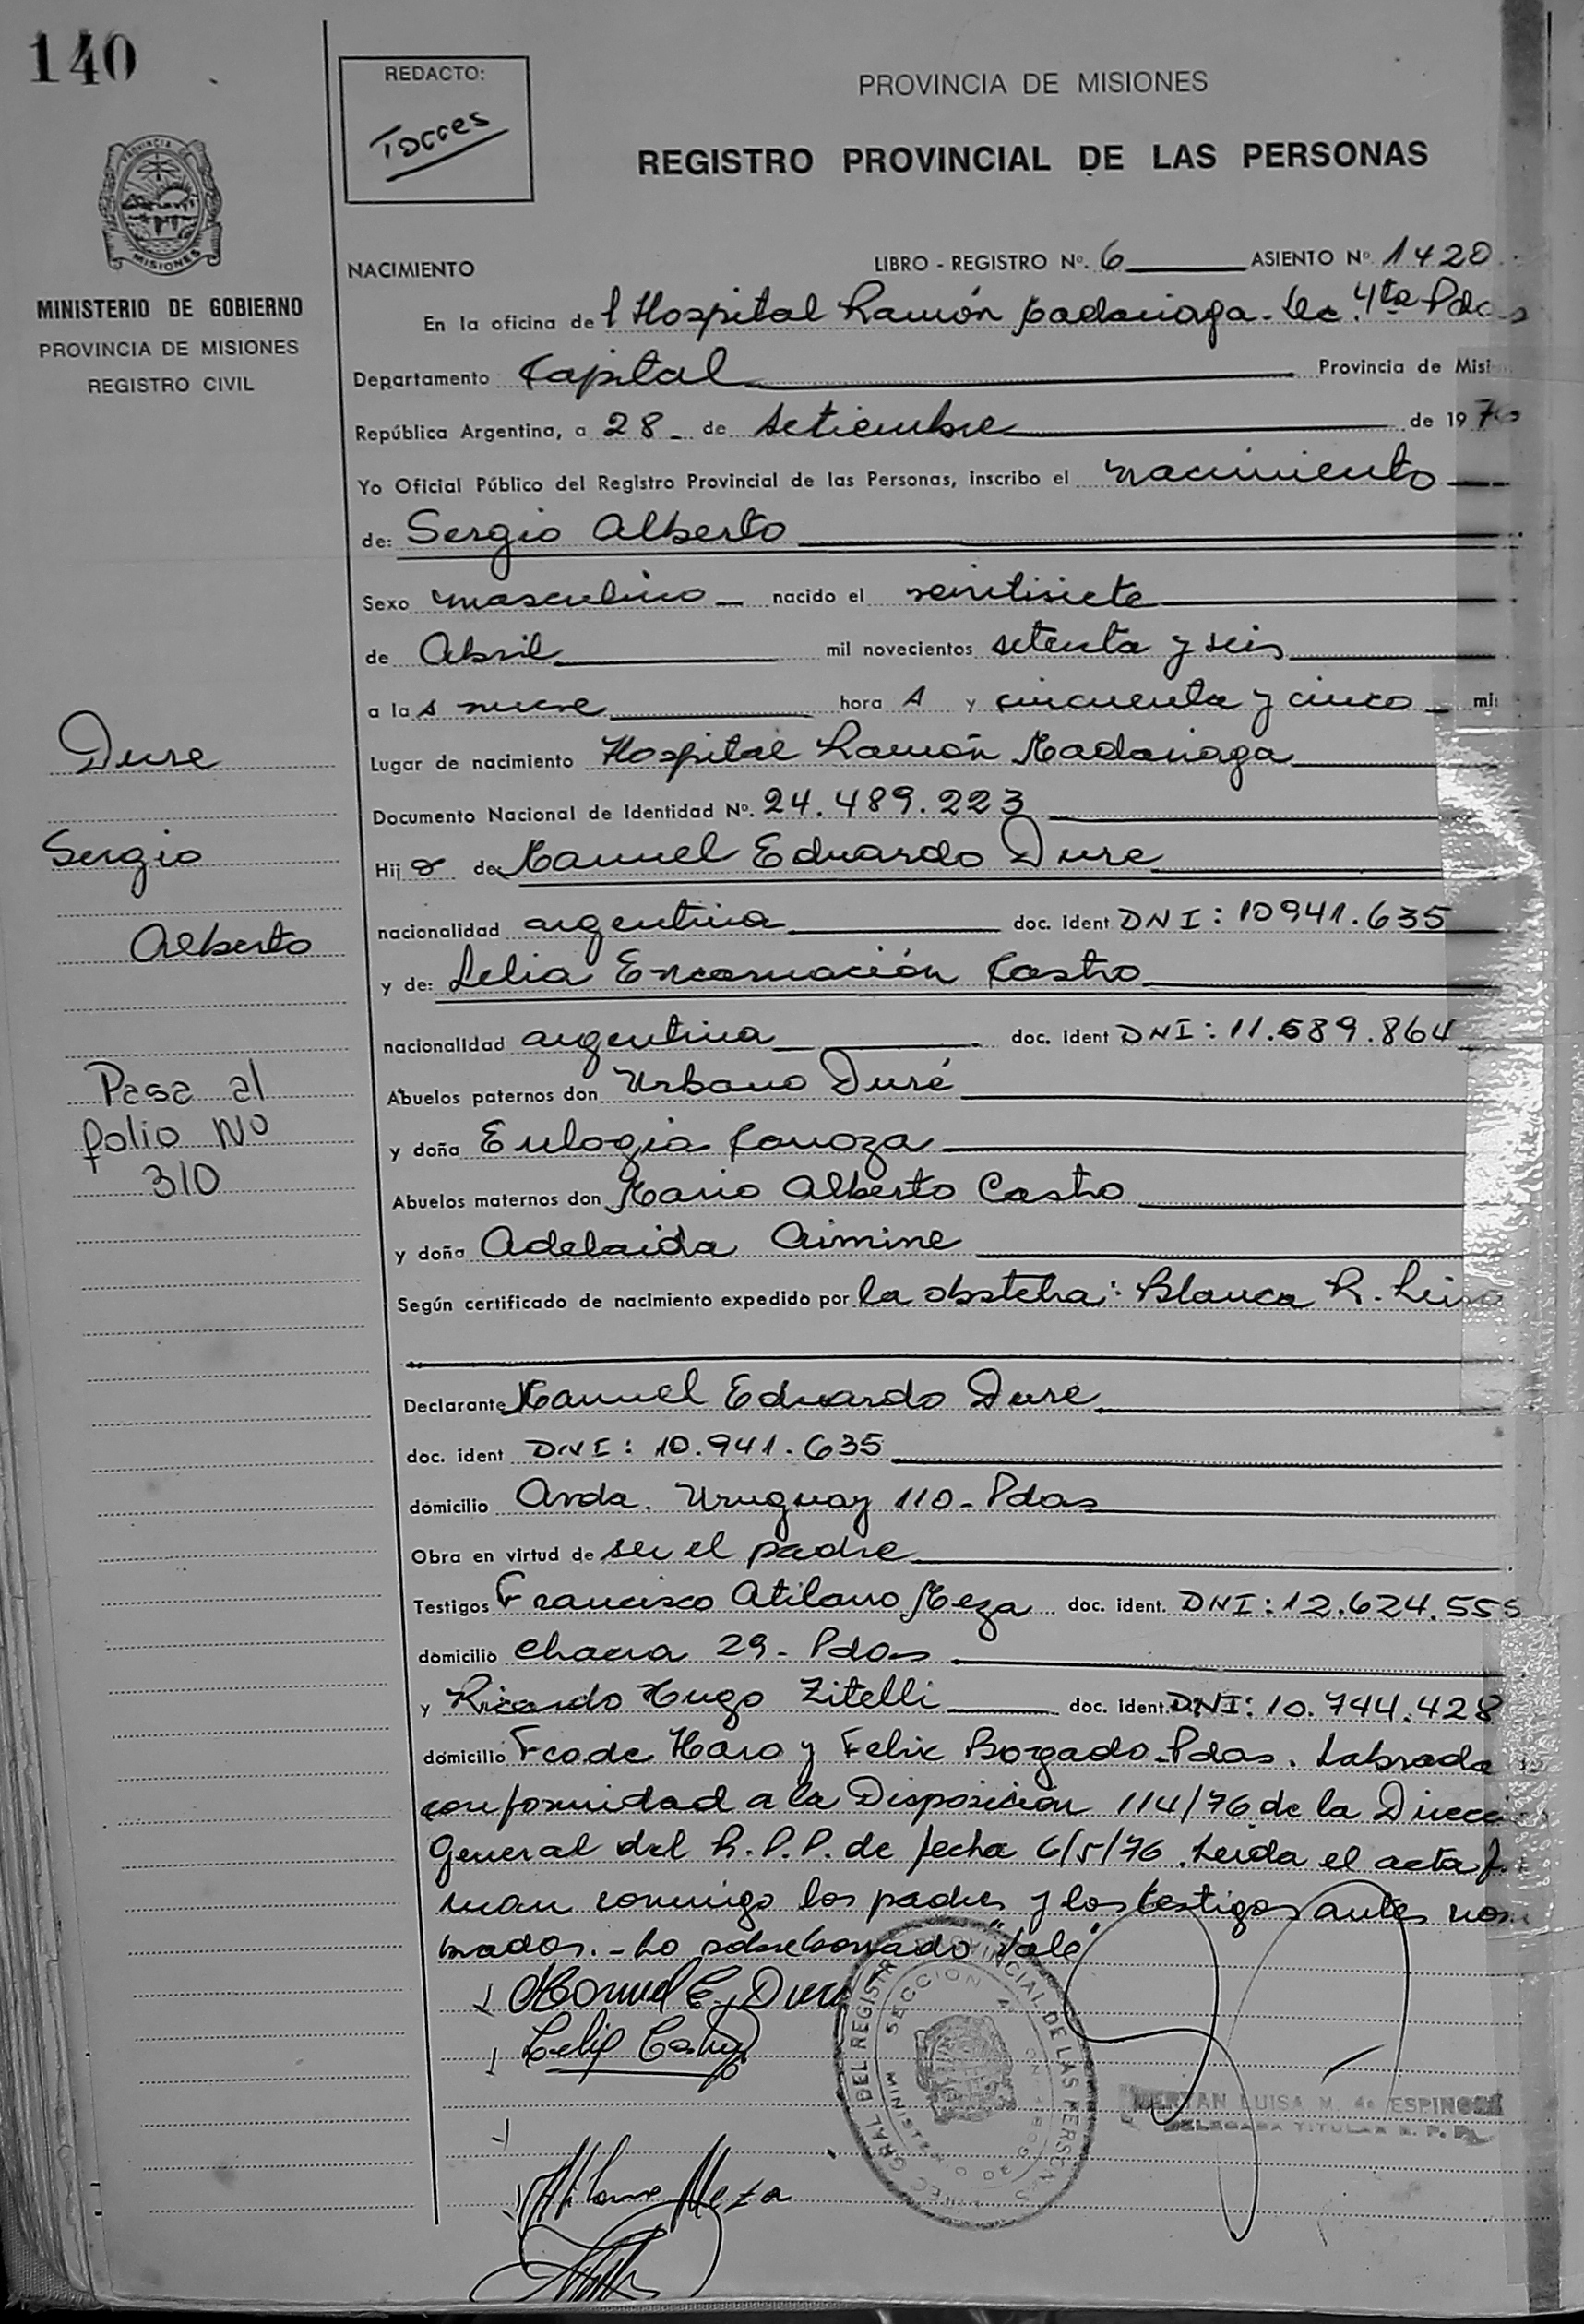 140
REDACTO:
Torres
PROVINCIA DE MISIONES
REGISTRO PROVINCIAL DE LAS PERSONAS
PROVINCIA DE
MISIONES
MINISTERIO DE GOBIERNO
PROVINCIA DE MISIONES
REGISTRO CIVIL
NACIMIENTO LIBRO - REGISTRO Nº. 6 ASIENTO Nº 1420
En la oficina del Hospital Ramón Madariaga - Sec. 4ta Pdas
Departamento Capital Provincia de Misi
República Argentina, a 28 de setiembre de 1976
Yo Oficial Público del Registro Provincial de las Personas, inscribo el nacimiento
de: Sergio Alberto
Sexo masculino nacido el veintisiete
de Abril mil novecientos setenta y seis
a las nueve hora s y cincuenta y cinco mi
Lugar de nacimiento Hospital Ramón Madariaga
Documento Nacional de Identidad Nº. 24.489.223
Hijo de Manuel Eduardo Dure
nacionalidad argentina doc. ident DNI: 10941.635
y de: Lelia Encarnación Castro
nacionalidad argentina doc. ident DNI: 11.689.864
Abuelos paternos don Urbano Duré
y doña Eulogia Canoza
Abuelos maternos don Mario Alberto Castro
y doña Adelaida Aimine
Según certificado de nacimiento expedido por la obstetra: Blanca R.
Declarante Manuel Eduardo Dure
doc. ident DNI: 10.941.635
domicilio Avda. Uruguay 110 - Pdas
Obra en virtud de ser el padre
Testigos Francisco Atilano Meza doc. ident. DNI: 12.624.555
domicilio chacra 29 - Pdas
y Ricardo Hugo Zitelli doc. ident. DNI: 10.744.428
domicilio Fco de Haro y Felix Bogado - Pdas. Labrada
conformidad a la Disposición 114/76 de la Direcci
General del R.P.P. de fecha 6/5/76. Leida el acta fi
man conmigo los padres y los testigos antes nom
brados. - Lo sobreborrado "Vale"
Manuel E. Dure
Lelia Castro
Atilano Meza
DIREC. GRAL DEL REGISTRO PROVINCIAL DE LAS PERSONAS
SECCION 4ª
LUISA M. de ESPINOSA
DELEGADA TITULAR R. P. P.
Dure
Sergio
Alberto
Pasa al
folio Nº
310